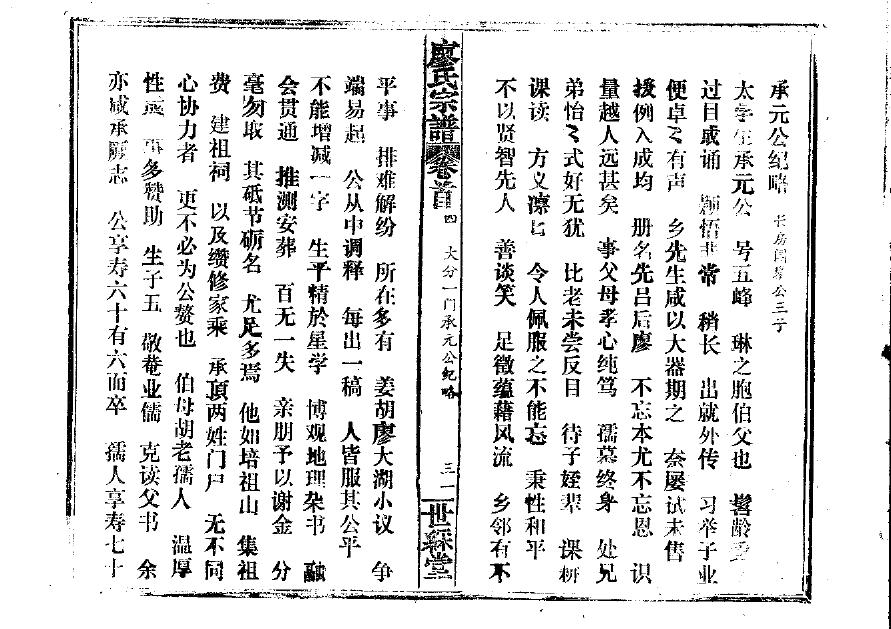 承元公纪略 长房国 公三子
太学生承元公 号五峰 琳之胞伯父也 髫龄受
过目成诵 颖悟非常 稍长 出就外传 习举子业
便卓々有声 乡先生咸以大器期之 奈屡试未售
援例入成均 册名先吕后廖 不忘本尤不忘恩 识
量越人远甚矣 事父母孝心纯笃 孺慕终身 处兄
弟怡々式好无犹 比老未尝反目 待子姪辈 课耕
课读 方义凛匕 令人佩服之不能忘 秉性和平
不以贤智先人 善谈笑 足徵蕴藉风流 乡邻有不
廖氏宗譜 卷首 四 大分一门承元公纪略 三一 世綵堂
平事 排难解纷 所在多有 姜胡廖大湖小议 争
端易起 公从中调释 每出一稿 人皆服其公平
不能增减一字 生平精於星学 博观地理杂书 融
会贯通 推测安葬 百无一失 亲朋予以谢金 分
毫勿取 其砥节砺名 尤足多焉 他如培祖山 集祖
费 建祖祠 以及缵修家乘 承顶两姓门户 无不同
心协力者 更不必为公赘也 伯母胡老孺人 温厚
性成 事多赞助 生子五 敬菴业儒 克读父书 余
亦咸承厥志 公享寿六十有六而卒 孺人享寿七十